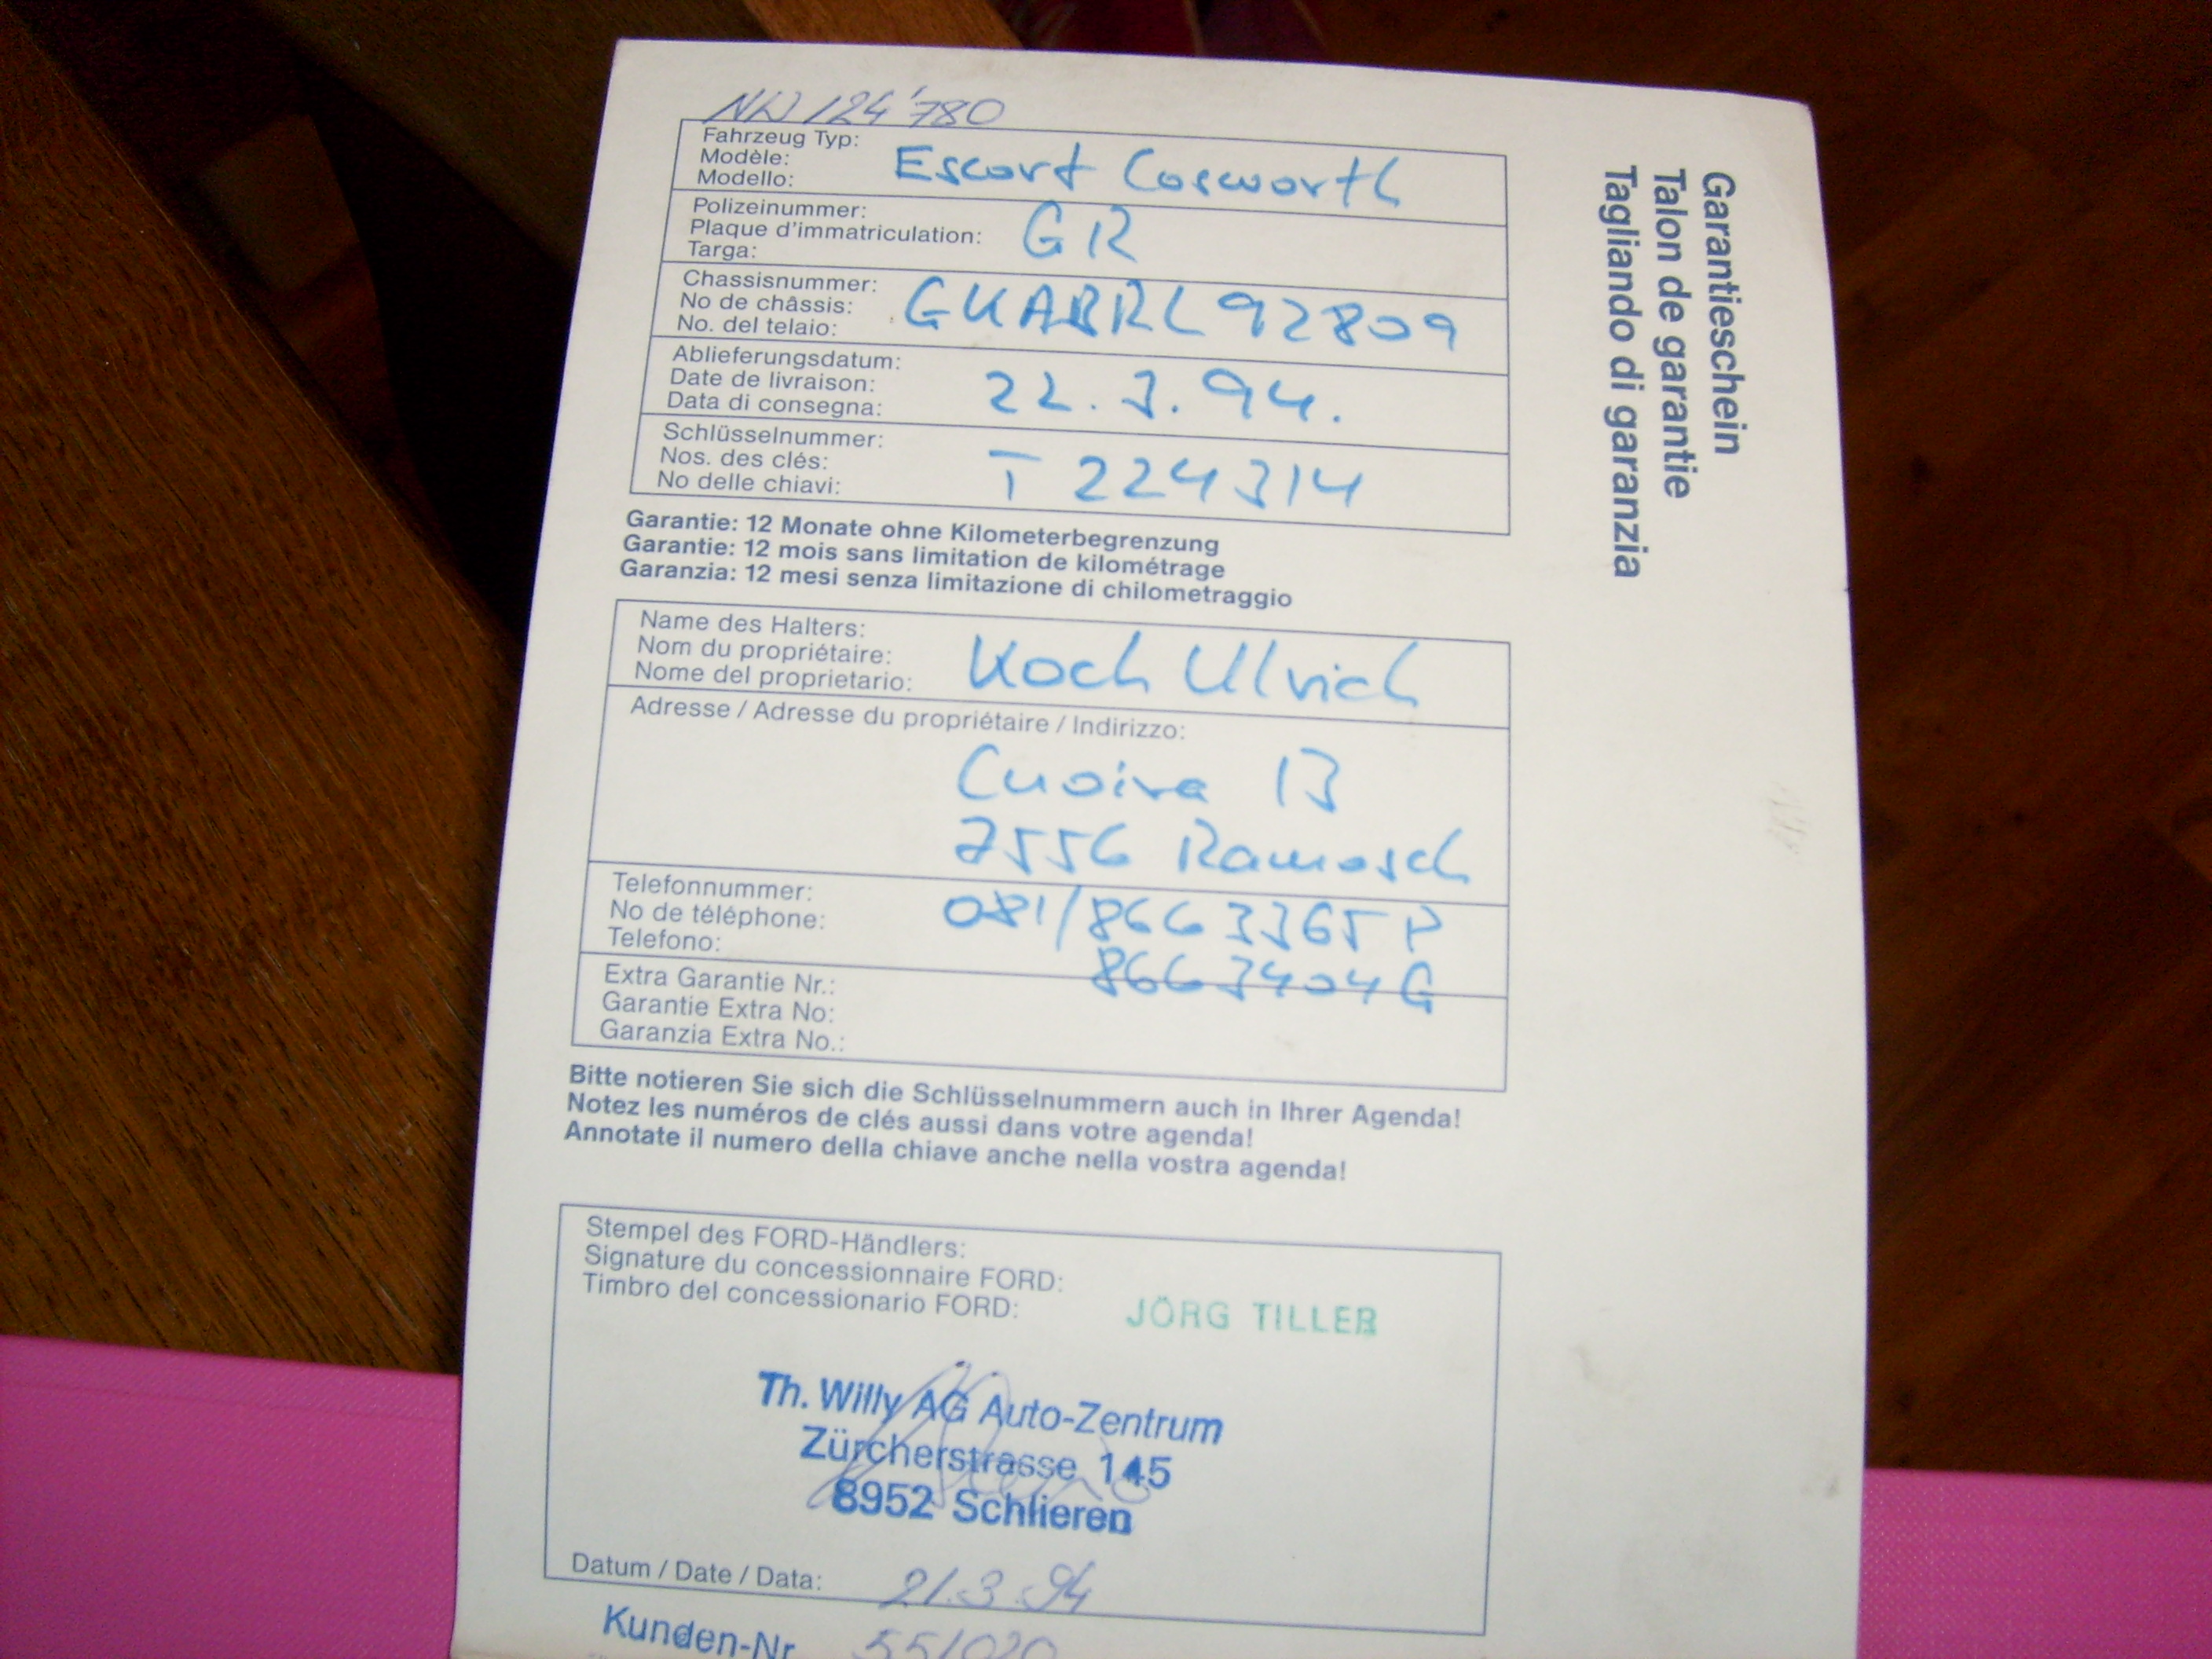 NW 124'780
Fahrzeug Typ:
Modèle:
Modello:
Escort Cosworth
Polizeinummer:
Plaque d'immatriculation:
Targa:
GR
Chassisnummer:
No de châssis:
No. del telaio:
GKABRL92809
Ablieferungsdatum:
Date de livraison:
Data di consegna:
22.3.94.
Schlüsselnummer:
Nos. des clés:
No delle chiavi:
T 224314
Garantie: 12 Monate ohne Kilometerbegrenzung
Garantie: 12 mois sans limitation de kilométrage
Garanzia: 12 mesi senza limitazione di chilometraggio
Name des Halters:
Nom du propriétaire:
Nome del proprietario:
Koch Ulrich
Adresse / Adresse du propriétaire / Indirizzo:
13
7556 Ramosch
Telefonnummer:
No de téléphone:
Telefono:
081/866 3365 P
866 3404 G
Extra Garantie Nr.:
Garantie Extra No:
Garanzia Extra No.:
Bitte notieren Sie sich die Schlüsselnummern auch in Ihrer Agenda!
Notez les numéros de clés aussi dans votre agenda!
Annotate il numero della chiave anche nella vostra agenda!
Stempel des FORD-Händlers:
Signature du concessionnaire FORD:
Timbro del concessionario FORD:
JÖRG TILLER
Th. Willy AG Auto-Zentrum
Zürcherstrasse 145
8952 Schlieren
Datum / Date / Data: 21.3.94
Kunden-Nr
Garantieschein
Talon de garantie
Tagliando di garanzia